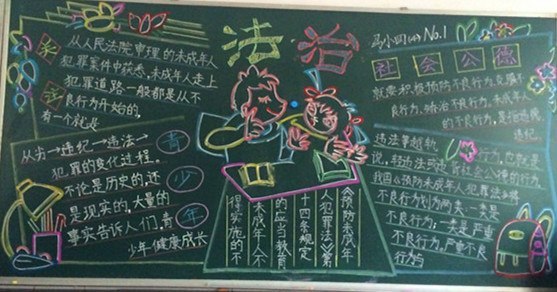 法治
关
于
从人民法院审理的未成年人
犯罪案件中获悉,未成年人走上
犯罪道路一般都是从不
良行为开始的,
有一个就是
从劣→违纪→违法→
犯罪的变化过程。
不论是历史的,还
是现实的,大量的
事实告诉人们,青
少年健康成长
青
少
年
No.1
社会公德
就应积极预防不良行为,克服
良行为,矫治不良行为,未成年
的不良行为,是指违纪
违法
行为,也就是
说,轻违法或违背社会公德的行为
我国《预防未成年人犯罪法》将
不良行为划为两类:一类是
不良行为;一类是严重
不良行为,严重不良
行为与
《预防未成年
人犯罪法》第
十四条规定
的应当教育
未成年人不
得实施的不